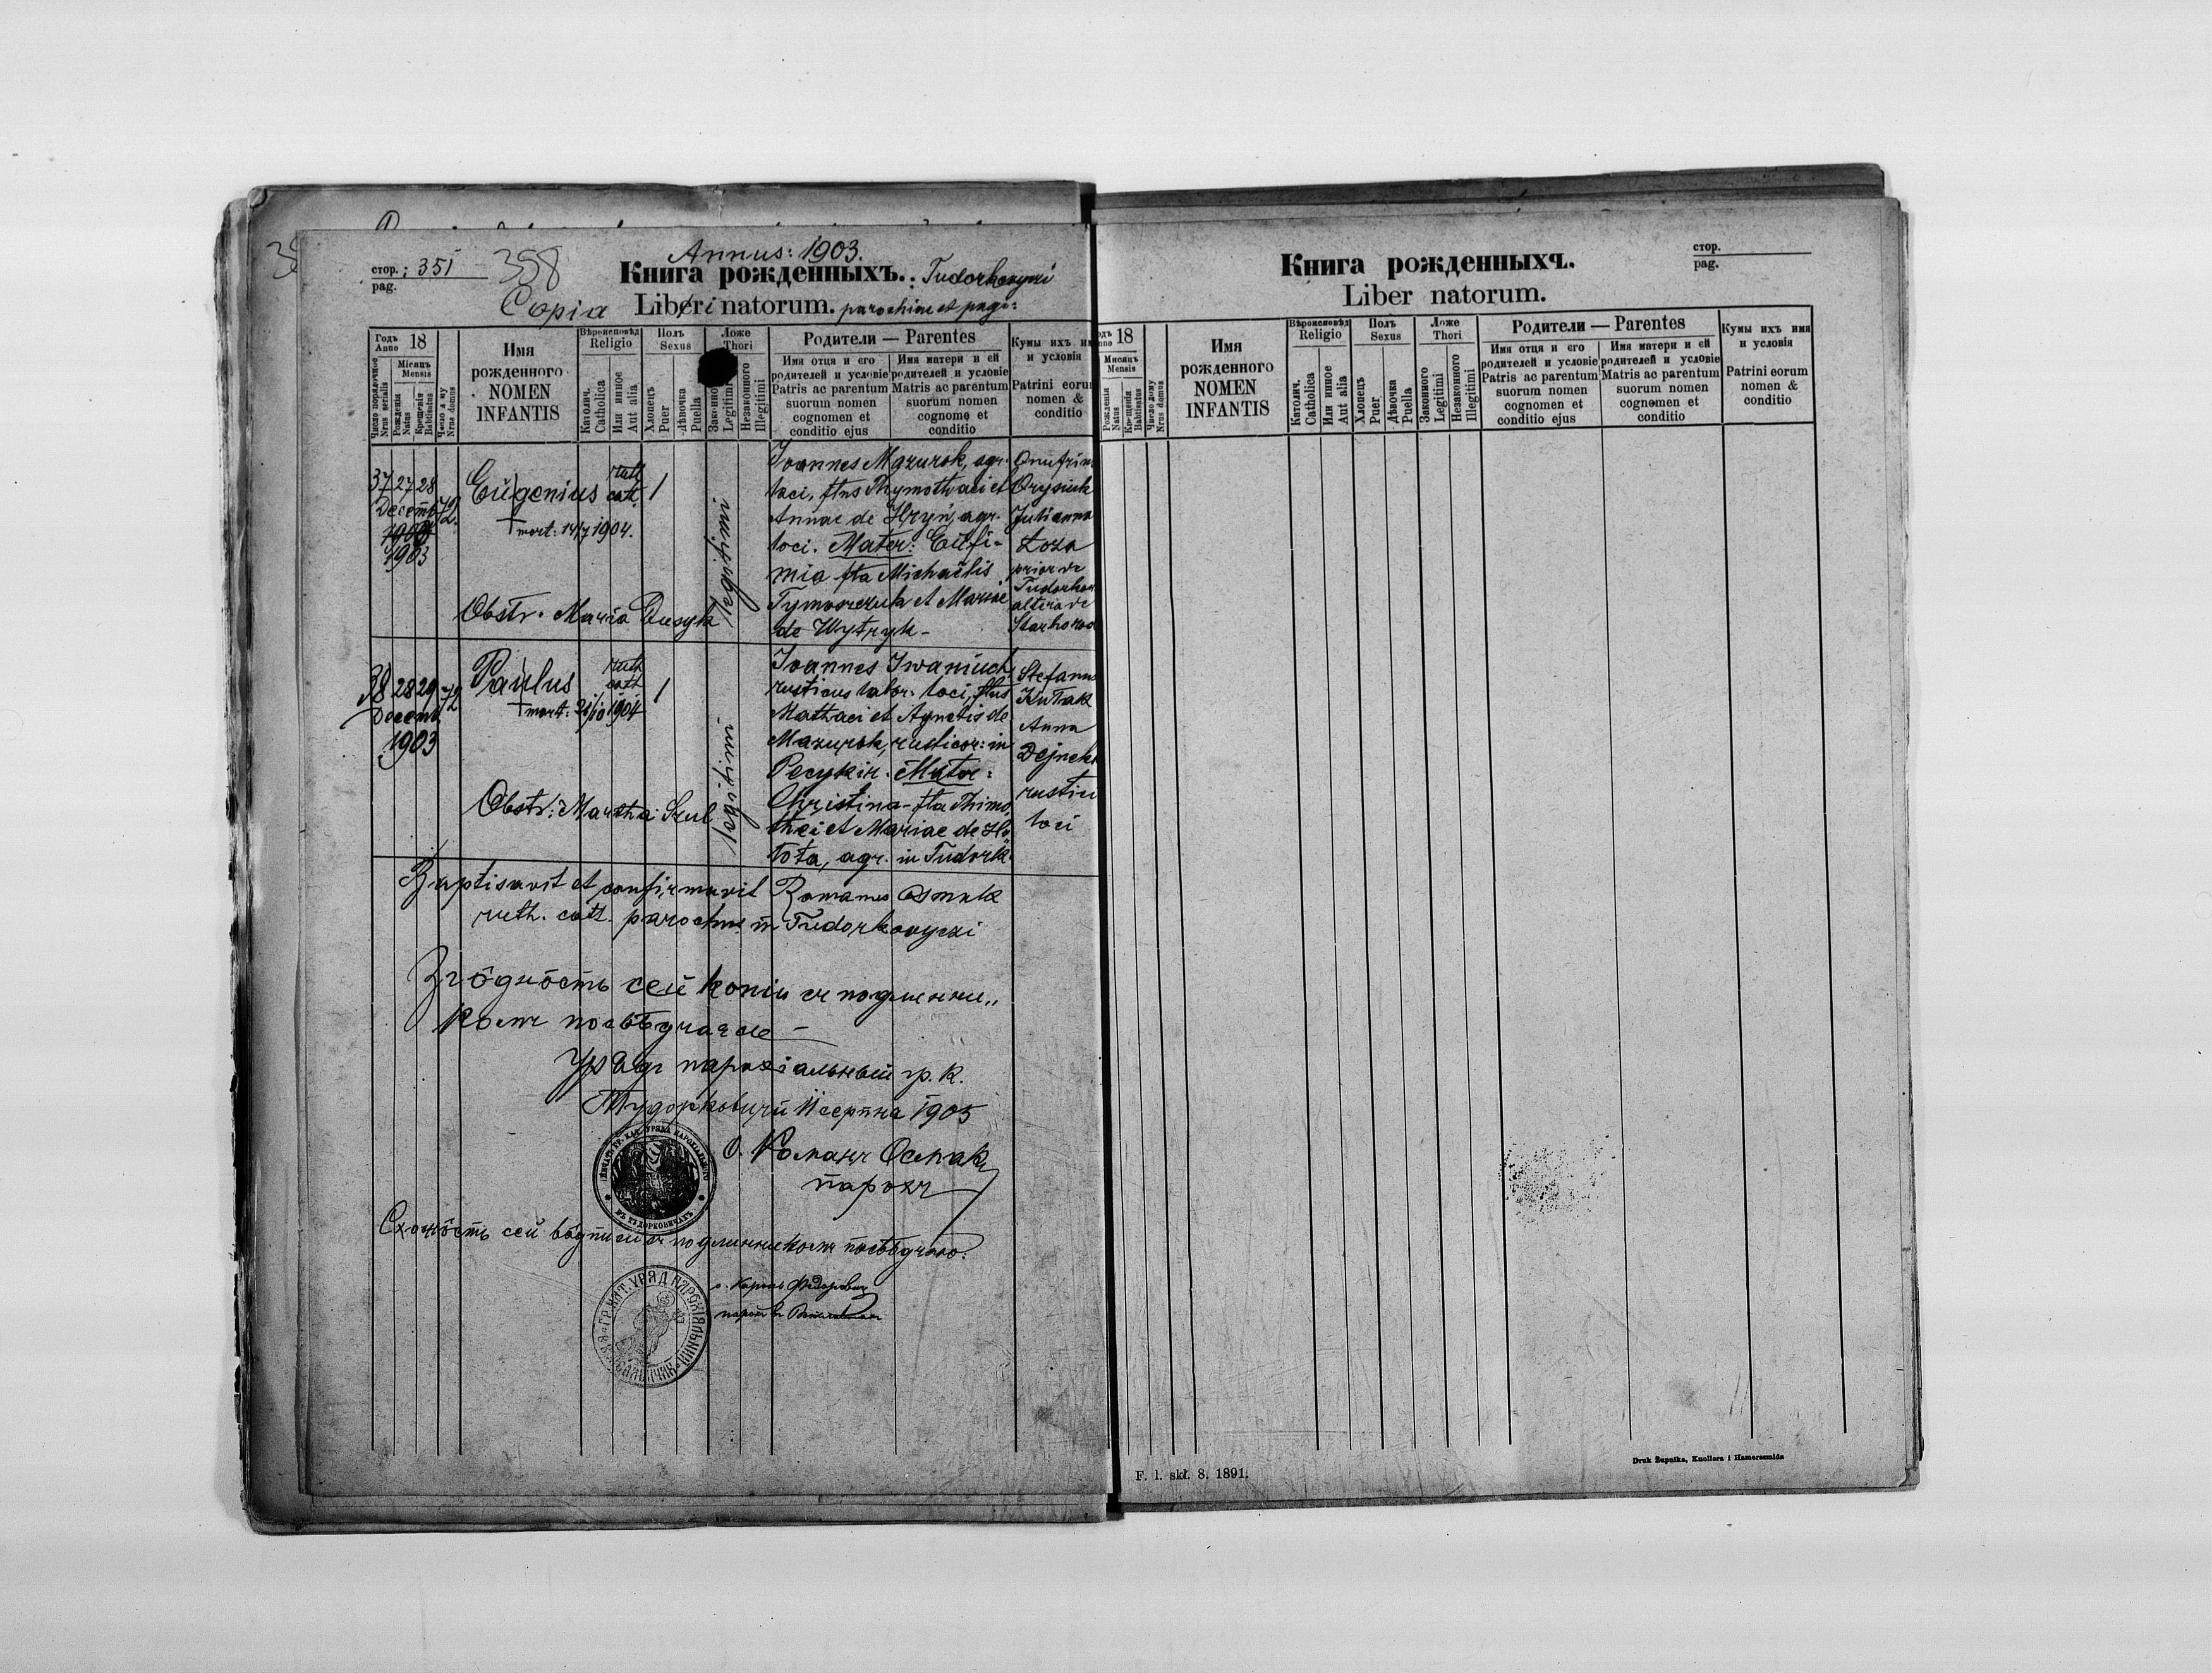 Annus: 1903.
стор.: 351
pag.
358
Книга рожденныхъ.: Tudorkowyczi
Copia Libri natorum. parochiae et pagi:
Годъ Anno 18
Місяць Mensis
Число порядочное Nrus serialis
Рожденья Natus
Крещенія Babtisatus
Число дому Nrus domus
Имя рожденного NOMEN INFANTIS
Вѣроисповѣд Religio
Католич. Catholica
Или инное Aut alia
Полъ Sexus
Хлопецъ Puer
Дѣвочка Puella
Ложе Thori
Законно Legitimi
Незаконного Illegitimi
Родители — Parentes
Имя отця и его родителей и условіе Patris ac parentum suorum nomen cognomen et conditio ejus
Имя матери и ей родителей и условіе Matris ac parentum suorum nomen cognome et conditio
Кумы ихъ им и условія
Patrini eorum nomen & conditio
37 27 28
Decemb
1903
72
Eugenius
† mort: 14/7 1904.
ruth
cath.
1
legitimi
Obstr. Maria Dusyk
Ioannes Mazurok, agr.
loci, flus Thymothaei et
Annae de Hryń, agr.
loci. Mater: Eufi-
mia fla Michaëlis
Tymoszczuk et Mariae
de Wytryk -
Onufrius
Orysiuk
Julianna
Łoza
prior de
Tudorkow
altera de
38 28 29
Decemb
1903
72
Paulus
† mort: 21/10 1904
ruth
cath
1
legitimi
Obstr: Martha Szul
Ioannes Iwaniuch
rusticus labor. loci, flus
Mathaei et Agnetis de
Mazurok, rusticor: in
Mater:
Christina - fla Thimo,
thei et Mariae de
agr. in Tudork.
Stefanus
Kułak
Anna
rustici
loci
Baptisavit et confirmavit Romanus Osmak
ruth. cath. parochus in Tudorkowyczi
Згôдность сей копіи съ подлинни„
комъ посвѣдчаєся —
Урядъ парохіальный гр. к.
Тудорковичи 11 серпня 1905
о. Романъ Осмакъ
парохъ
ПЕЧАТЬ ГР. КАТ. УРЯДА ПАРОХІАЛЬНОГО
ВЪ ТУДОРКОВИЧАХЪ
Схожôсть сей вôдписи съ подлинникомъ посвѣдчаю:
ГР. КАТ. УРЯД ПАРОХІЯЛЬНИЙ
стор.
pag.
Книга рожденныхъ.
Liber natorum.
18
Місяць Mensis
Рожденія Natus
Крещенія Babtisatus
Число дому Nrus domus
Имя рожденного NOMEN INFANTIS
Вѣроисповѣд Religio
Католич. Catholica
Или инное Aut alia
Полъ Sexus
Хлопецъ Puer
Дѣвочка Puella
Ложе Thori
Законного Legitimi
Незаконного Illegitimi
Родители — Parentes
Имя отця и его родителей и условіе Patris ac parentum suorum nomen cognomen et conditio ejus
Имя матери и ей родителей и условіе Matris ac parentum suorum nomen cognomen et conditio
Кумы ихъ имя и условія
Patrini eorum nomen & conditio
F. 1. skł. 8. 1891.
Druk Żupnika, Knollera i Hamerszmida